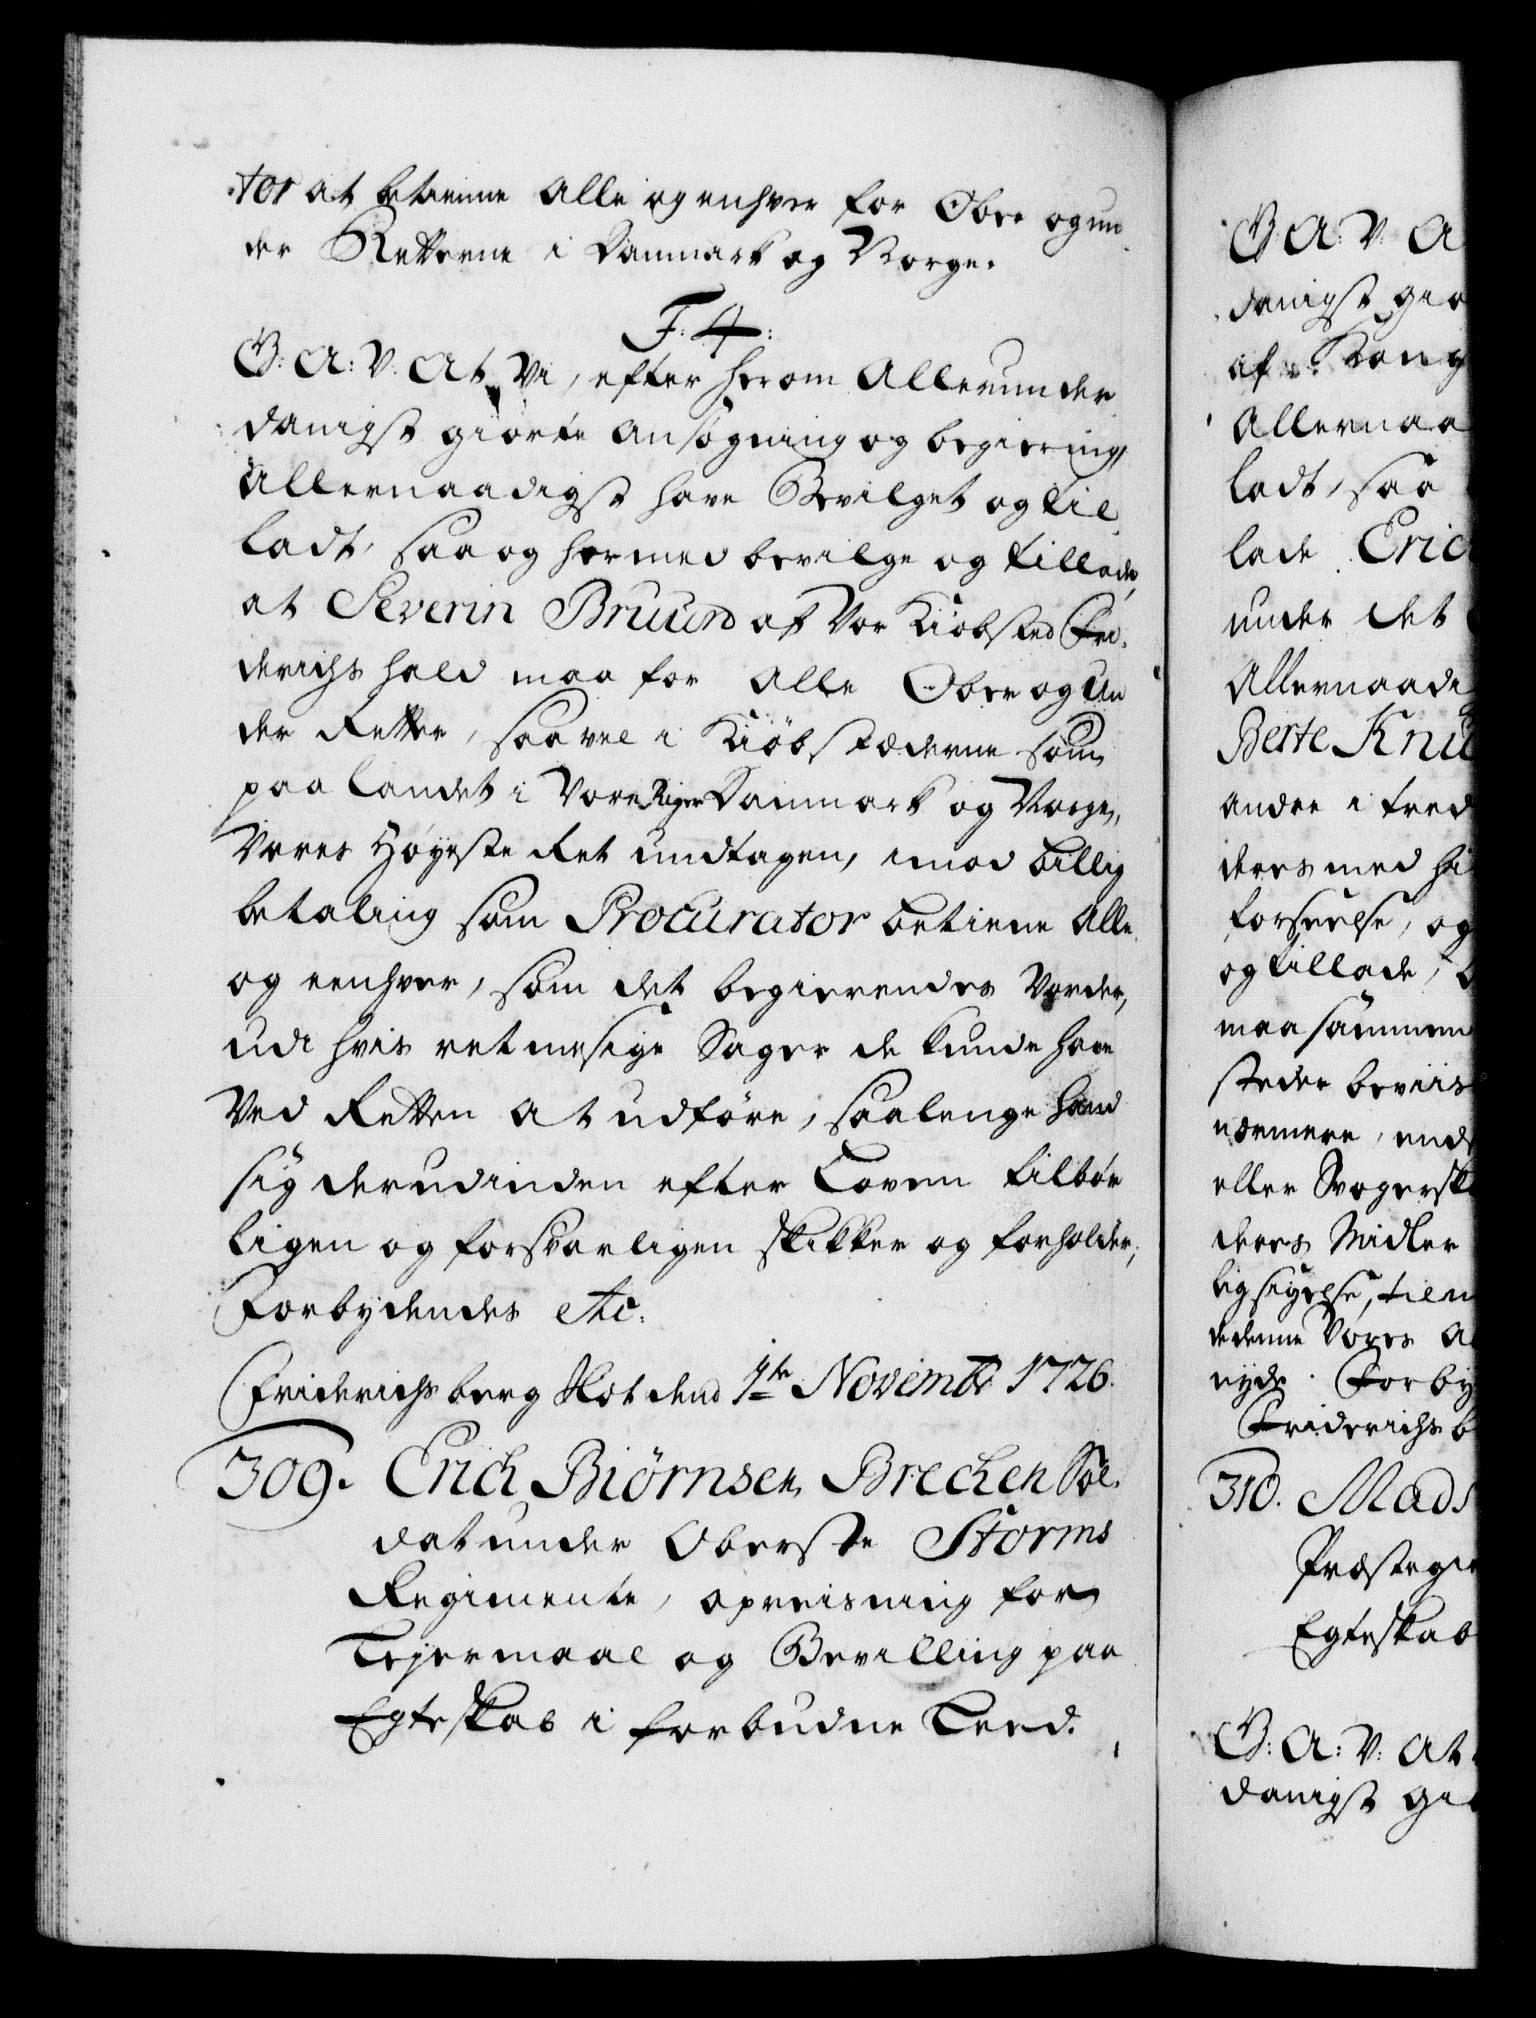 tor at betienne Alle og enhver for Ober og un
der Retterne i Danmark og Norge.
F. 4.
G: A: V. At Vi, efter herom Allerunder
danigst giorte Ansøgning og begiering,
Allernaadigst have Bevilget og til
ladt, saa og hermed bevilge og tillade,
at Severin Bruund af Vor Kiøbsted Fri.
derichshald maa for Alle Ober og Un
der Retter, saavel i Kiøbstæderne som
paa Landet i Vore Riger Danmark og Norge,
Vores Høyeste Ret undtagen, imod billig
betaling som Procurator betiene Alle
og eenhver, som det begierendes Vorder,
udi hvis retmesige Sager de kunde have
Ved Retten At udføre, saalenge hand
sig derudinden efter Loven tilbør
ligen og forsvarligen skikker og forholder,
Forbydendes etc:
Friderichsberg Slot dend 4te Novembr 1726.
309. Erich Biørnsen Brechen Sol.
dat under Oberste Storms
Regimente, opreisning for
Lejermaal og Bevilling paa
Egteskab i forbudne Leed.
G A: V: A
danigst gio
af Kong
Allernaa
ladt, saa
lade Eric
under det
Allernaadi
Berte Knu
anden i tred
deres med hi
forseelse, og
og tillade,
maa sammen
steder beviis
nærmere, end
eller Svogersk
deres Midler
lig sigelse, til
denne Vores A
nyde. Forby
Friderichs b
310. Mads
Præstegie
Egteskab
G: A: V: At
danigst gi